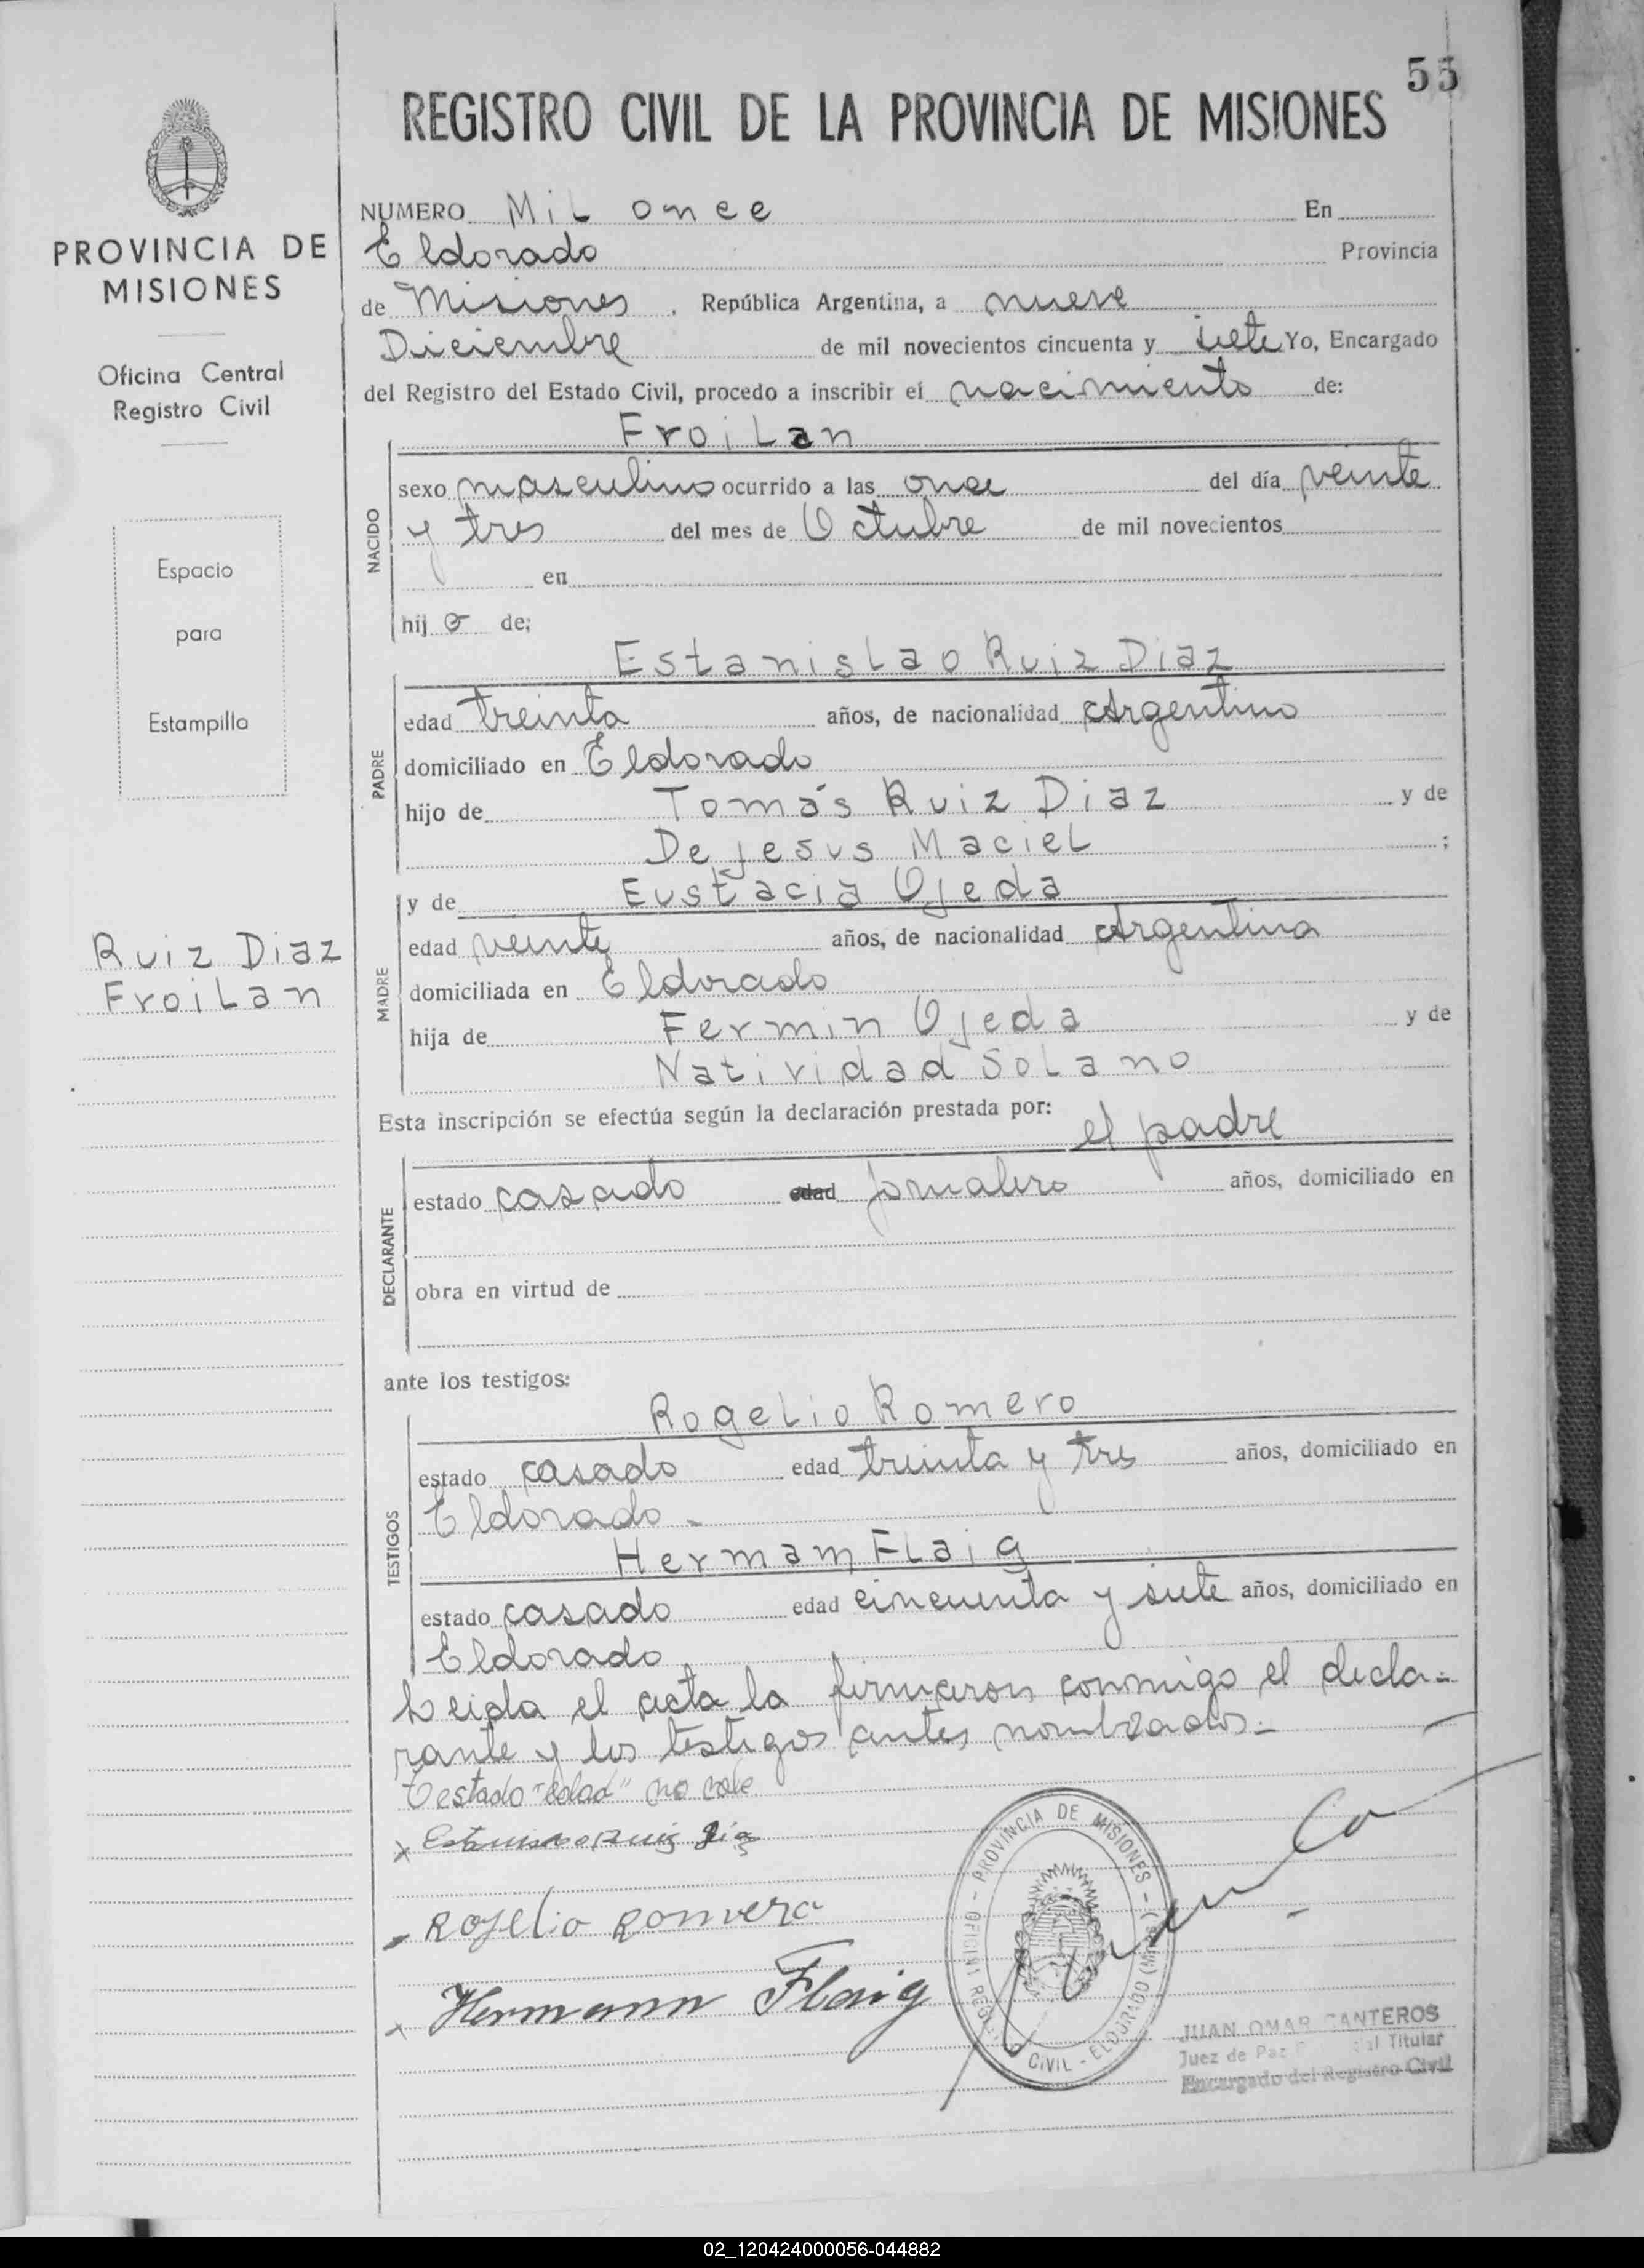 55
REGISTRO CIVIL DE LA PROVINCIA DE MISIONES
PROVINCIA DE
MISIONES
Oficina Central
Registro Civil
Espacio
para
Estampilla
Ruiz Diaz
Froilan
NUMERO Mil once En
Eldorado Provincia
de Misiones, República Argentina, a nueve
Diciembre de mil novecientos cincuenta y siete Yo, Encargado
del Registro del Estado Civil, procedo a inscribir el nacimiento de:
Froilan
NACIDO
sexo masculino ocurrido a las once del día veinte
y tres del mes de Octubre de mil novecientos
en
hijo de:
Estanislao Ruiz Diaz
PADRE
edad treinta años, de nacionalidad Argentino
domiciliado en Eldorado
hijo de Tomás Ruiz Diaz y de
De Jesus Maciel ;
y de Eustacia Ojeda
MADRE
edad veinte años, de nacionalidad Argentina
domiciliada en Eldorado
hija de Fermin Ojeda y de
Natividad Solano
Esta inscripción se efectúa según la declaración prestada por:
el padre
DECLARANTE
estado casado edad jornalero años, domiciliado en
obra en virtud de
ante los testigos:
Rogelio Romero
TESTIGOS
estado casado edad treinta y tres años, domiciliado en
Eldorado -
Hermam Flaig
estado casado edad cincuenta y siete años, domiciliado en
Eldorado
Leida el acta la firmaron conmigo el decla-
rante y los testigos antes nombrados.-
Testado "edad" no vale
x Estanislao Ruiz Diaz
Rogelio
x Hermann Flaig
PROVINCIA DE MISIONES - ELDORADO
CIVIL
JUAN OMAR CANTEROS
Juez de Paz Titular
Encargado del Registro Civil
02_120424000056-044882